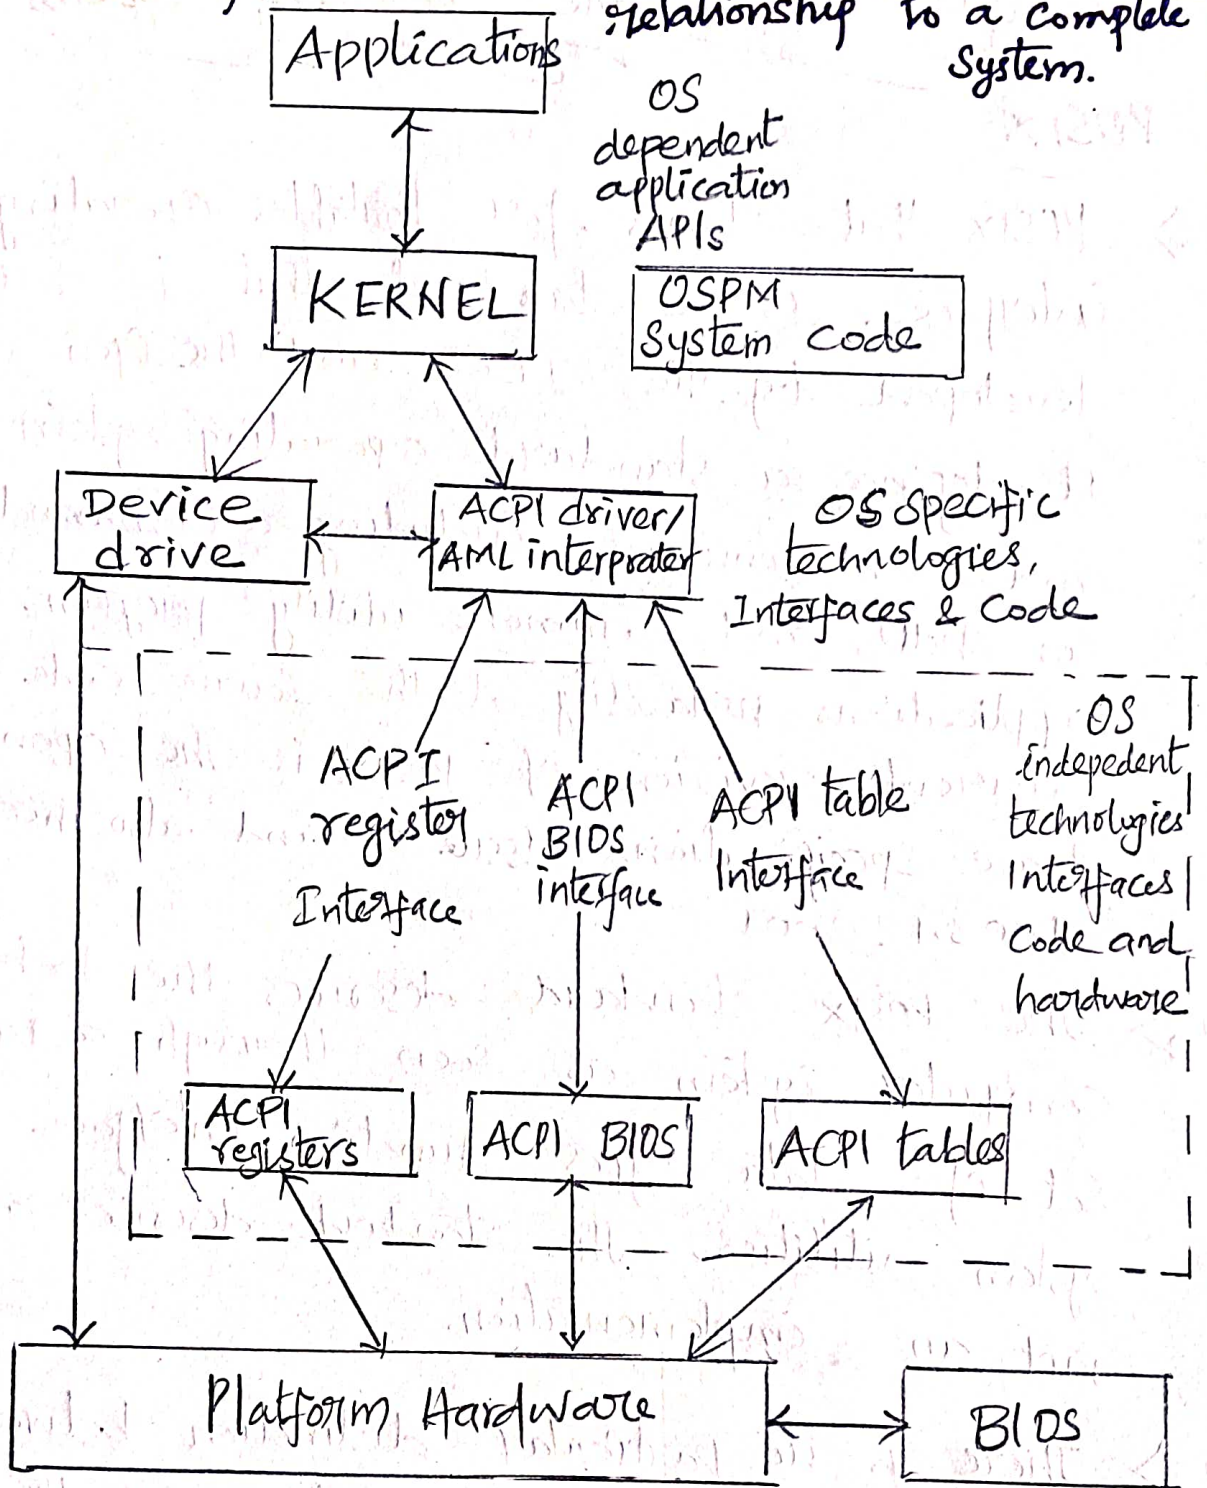 relationship to a complete
System.
Applications
OS
dependent
application
APIs
KERNEL
OSPM
System code
Device
drive
ACPI driver/
AML interprater
OS Specific
technologies,
Interfaces & Code
ACPI
register
Interface
ACPI
BIOS
interface
ACPI table
Interface
OS
indepedent
technologies
Interfaces
Code and
hardware
ACPI
registers
ACPI BIOS
ACPI tables
Platform Hardware
BIOS